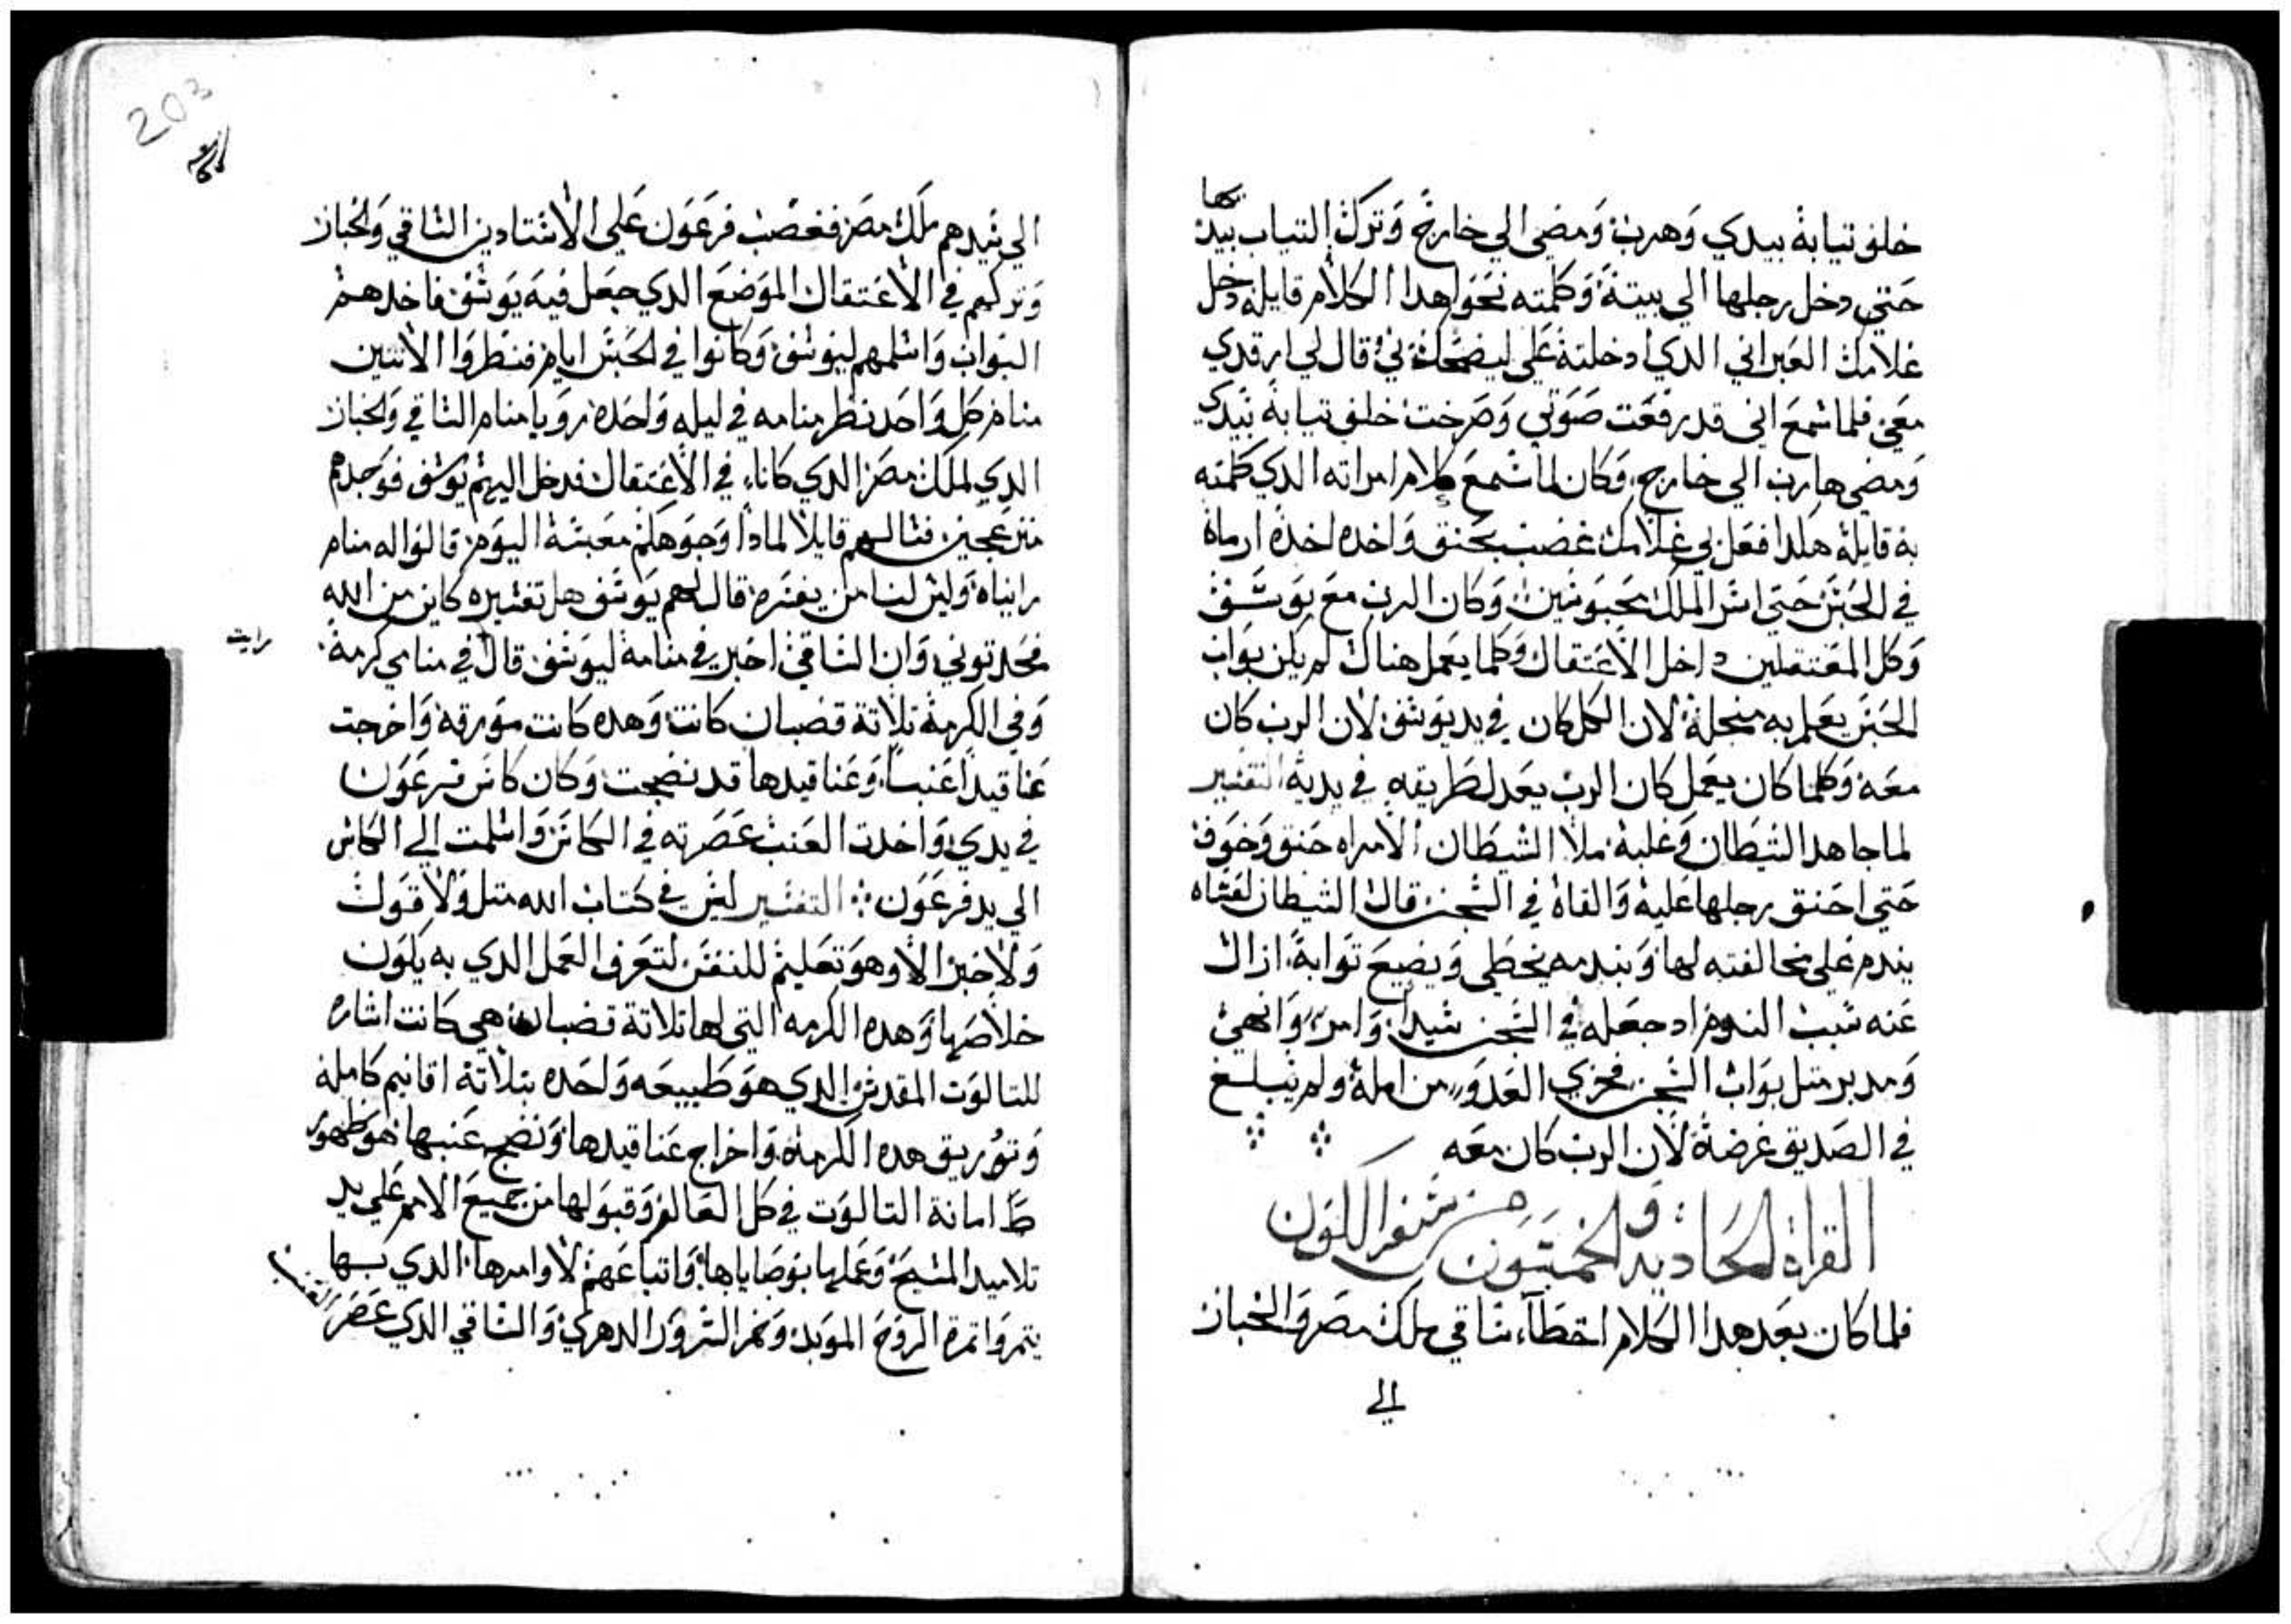 خلف تيابة بيدي وهرب ومضي الي خارج وترك التياب بيدها
حتي دخل رجلها الي بيتة وكلمته نحو هدا الكلام قايلة دخل
غلامك العبراني الدي ادخلتة علي ليضحك بي وقال لي ارقدي
معي فلما سمع اني قد رفعت صوتي وصرخت خلف تيابة بيدي
ومضي هارب الي خارج وكان لما سمع كلام امراته الدي كلمته
به قايلة هكدا فعل بي غلامك غضب بحنق واخده اخدة ارماة
في الحبس حتي اسر الملك محبوسين وكان الرب مع يوسف
وكل المعتقلين داخل الاعتقال وكلما يعمل هناك لم يكن بواب
الحبس يعلم به منجلة لان الكل كان في يد يوسف لان الرب كان
معة وكلما كان يعمل كان الرب يعدل طريقه في يدية التفسير
لما جاهد الشيطان وغلبة ملا الشيطان الامراه حنق وخوف
حتي احنق رجلها علية والقاة في السجن قال الشيطان لعساه
يندم علي مخالفته لها وبندمه يخطي ويضيع توابة ازال
عنه سبب الندم اد جعله في السجن سيدا وامر وانهي
ومدبر متل بواب السجن فخزي العدو من امله ولم يبلغ
في الصديق غرضة لان الرب كان معه
القراة الحادية والخمسون من سفر الكون
فلما كان بعد هدا الكلام اخطاء ساقي ملك مصر والخباز
الي
203
الي سيدهم ملك مصر فغضب فرعون علي الاستادين الساقي والخباز
وتركهم في الاعتقال الموضع الدي جعل فية يوسف فاخدهم
البواب واسلمهم ليوسف وكانوا في الحبس ايام فنظروا الاتنين
منام كل واحد نظر منامه في ليله واحدة رويا منام الساقي والخباز
الدي لملك مصر الدي كاناء في الاعتقال فدخل اليهم يوسف فوجدهم
منزعجين فسالهم قايلا لمادا وجوهكم معبسة اليوم قالوا له منام
راينياة وليس لنا من يفسره قال لهم يوسف هل تفسيره كاين من الله
فحدتوني وان الساقي اخبر في منامة ليوسف قال في منامي كرمة
رايت
وفي الكرمة تلاتة قضبان كانت وهده كانت مورقة واخرجت
عناقيدا عنبا وعناقيدها قد نضجت وكان كاس فرعون
في يدي واخدت العنب عصرته في الكاس واسلمت الي الكاس
الي يد فرعون التفسير ليس في كتاب الله متل ولا قول
ولا خبر الا وهو تعليم للنفس لتعرف العمل الدي به يكون
خلاصها وهده الكرمه التي لها تلاتة قضبان هي كانت اشاره
للتالوت المقدس الدي هو طبيعه واحده بتلاتة اقانيم كاملة
وتوريق هده الكرمة واخراج عناقيدها ونضج عنبها هو ظهور
امانة التالوت في كل العالم وقبولها من جميع الامم علي يد
تلاميد المسيح وعملها بوصاياها واتباعهم لاوامرها الدي بها
يتمروا تمرة الروح الموبد وخمر السرور الدهري والساقي الدي عصر
العنب